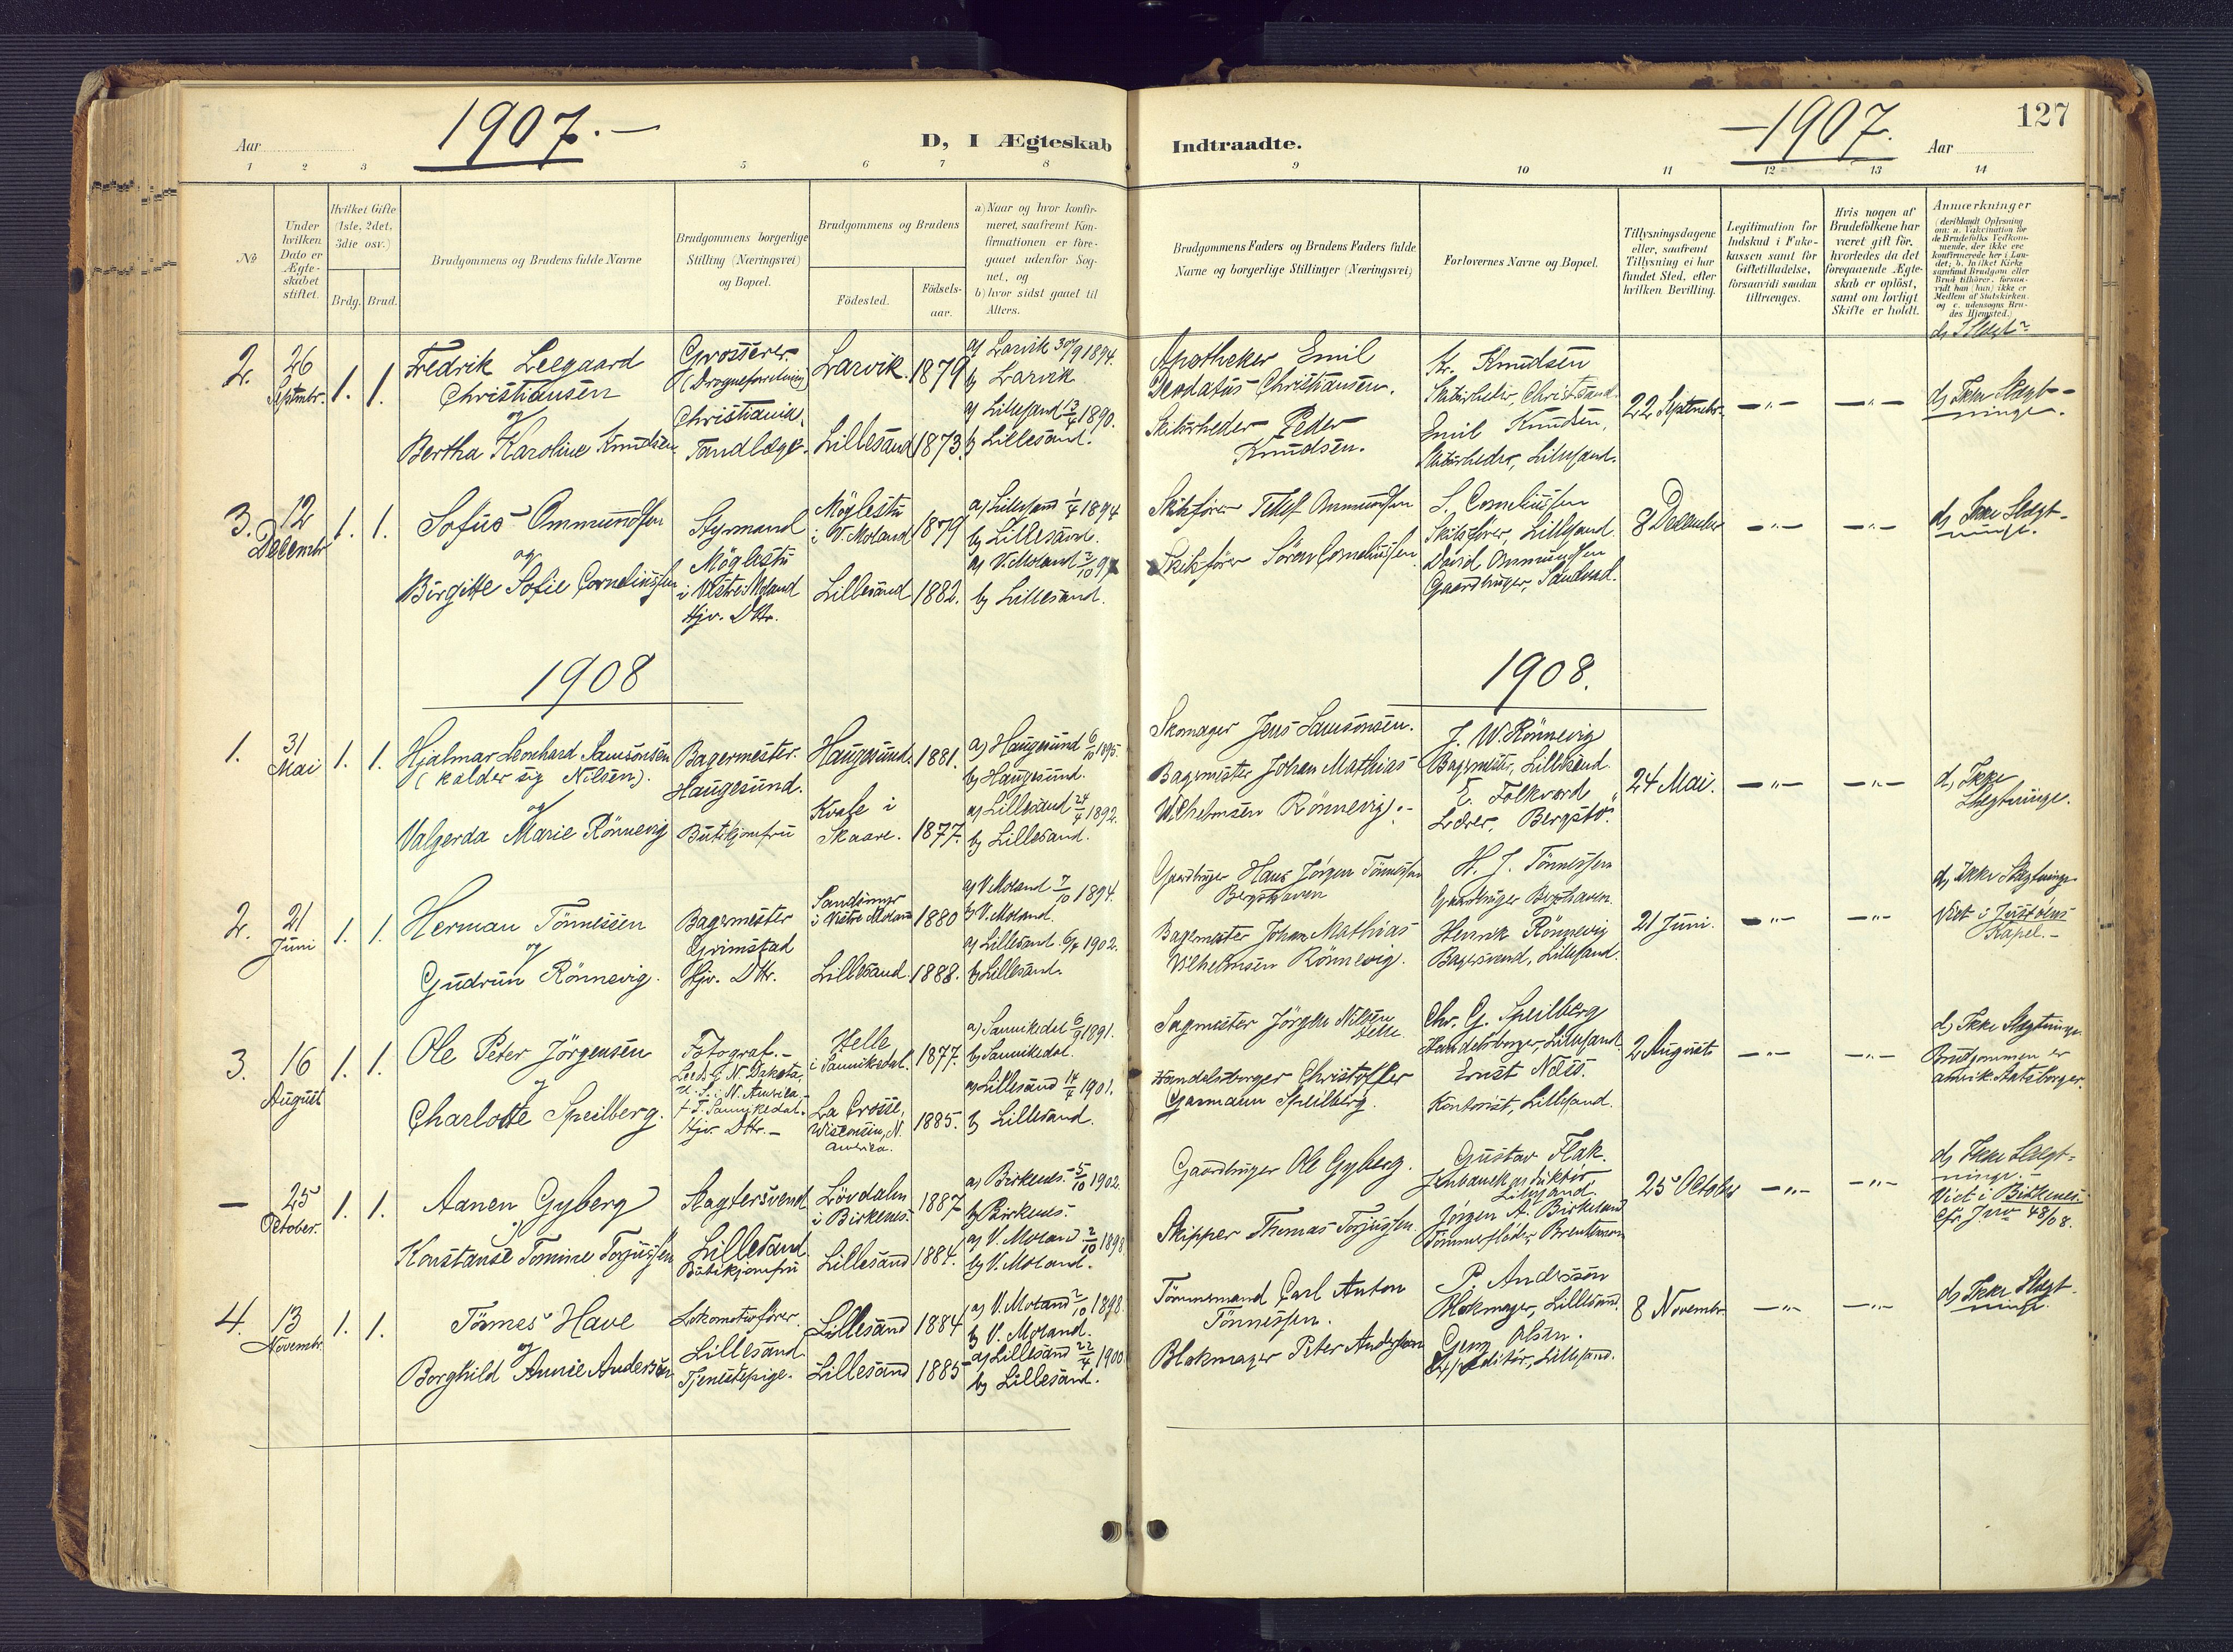 1907.-
-1907.
127
Aar
D, I Ægteskab
Indtraadte.
Aar
1 2 3 5 6 7 8 9 10 11 12 13 14
No
Under hvilken Dato er Ægteskabet stiftet.
Hvilket Gifte (1ste, 2det, 3die osv.)
Brdg. Brud.
Brudgommens og Brudens fulde Navne
Brudgommens borgerlige Stilling (Næringsvei) og Bopæl.
Brudgommens og Brudens
Födested.
Födsels-aar.
a) Naar og hvor konfirmeret, saafremt Konfirmationen er foregaaet udenfor Sognet, og
b) hvor sidst gaaet til Alters.
Brudgommens Faders og Brudens Faders fulde Navne og borgerlige Stillinger (Næringsvei)
Forlovernes Navne og Bopæl.
Tillysningsdagene eller, saafremt Tillysning ei har fundet Sted, efter hvilken Bevilling.
Legitimation for Indskud i Enkekassen samt for Giftetilladelse, forsaavidt saadan tiltrænges.
Hvis nogen af Brudefolkene har været gift før, hvorledes da det foregaaende Ægteskab er oplöst, samt om lovligt Skifte er holdt.
Anmærkninger
(deriblandt Oplysning om: a. Vakcination for de Brudefolks Vedkommende, der ikke ere konfirmerede her i Landet; b. hvilket Kirkesamfund Brudgom eller Brud tilhører, forsaavidt han (hun) ikke er Medlem af Statskirken, og c. udensogns Brudes Hjemsted.)
2. 26 Septembr. 1. 1.
Fredrik Leegaard
Christiansen
og
Bertha Karoline Knudsen
Grosserer
(Drogueforretning)
Christiania.
Tandlæge.
Larvik. 1879
Lillesand 1873.
a) Larvik 30/9 1894.
b) Larvik
a) Lillesand 13/4 1890.
b) Lillesand.
Apotheker Emil
Deodatus Christiansen.
Skibsrheder Peder
Knudsen.
Kr. Knudsen
Skibsrheder, Christsand.
Emil Knudsen,
Skibsrheder, Lillesand.
22 Septembr.
-"-
-"-
d) Ikke Slægt-
ninge.
3. 12 Decembr. 1. 1.
Sofus Ommundsen
og
Birgitte Sofie Corneliussen
Styrmand
Møglestu
i Vestre Moland
Hjv. Dttr.
Møglestu
i V. Moland 1879
Lillesand 1882.
a) Lillesand 1/4 1894
b) Lillesand.
a) V. Moland 2/10 97
b) Lillesand.
Skibsfører Tellef Ommundsen
Skibsfører Søren Corneliussen
S. Corneliussen
Skibsfører, Lillesand
David Ommundsen
Gaardbruger, Sandsad.
8 December
-"-
-"-
d) Ikke Slægt-
ninge.
1908
1908.
1. 31 Mai 1. 1.
Hjalmar Leonhard Samsonsen
(kalder sig Nilsen).
og
Valgerda Marie Rönnevig
Bagermester.
Haugesund.
Butikjomfru
Haugesund. 1881.
Kvale i
Skaare. 1877.
a) Haugesund 6/10 1895.
b) Haugesund.
a) Lillesand 24/4 1892.
b) Lillesand.
Skomager Jens Samsonsen.
Bagermester Johan Mathias
Wilhelmsen Rönnevig.-
J. W. Rönnevig
Bagermester, Lillesand.
E. Folkvord
Lærer, Bergstø.
24 Mai.
-"-
-"-
d, Ikke
Slægtninge.
2. 21 Juni 1. 1.
Herman Tönnessen
og
Gudrun Rönnevig.
Bagermester
Grimstad
Hjv. Dttr.
i Vestre Moland 1880
Lillesand 1888.
a) V. Moland 7/10 1894.
b) V. Moland.
a) Lillesand 6/4 1902.
b) Lillesand.
Gaardbruger Hans Jörgen Tönnessen
Bergshaven
Bagermester Johan Mathias
Vilhelmsen Rönnevig.
H. J. Tönnessen
Gaardbruger Bergshaven.
Henrik Rönnevig
Bagersvend, Lillesand.
21 Juni.
-"-
-"-
d) Ikke Slægtninge
Viet i Justøens
Kapel.-
3. 16 August 1. 1.
Ole Peter Jörgensen
og
Charlotte Speilberg.
Fotograf.-
Leeds, N. Dakota,
U. S. i N. Amerika.
f. T. Sannikedal.
Hjv. Dttr.-
Helle
i Sannikedal. 1877.
La Crosse,
Wisconsin, N.
Amerika. 1885.
a) Sannikedal 6/9 1891.
b) Sannikedal.
a) Lillesand 14/4 1901.
b) Lillesand.
Sagmester Jörgen Nilsen
Helle.
Handelsborger Christoffer
Garmann Speilberg.
Chr. G. Speilberg
Handelsborger, Lillesand.
Ernst Næss.
Kontorist, Lillesand.
2 August
-"-
-"-
d) Ikke Slægtninge.
Brudgommen er
amrik. Statsborger.
- 25 October. 1. 1.
Aanen Gyberg
og
Konstanse Tomine Torjussen
Slagtersvend
Lillesand
Butikjomfru
Lövdalen
i Birkenes. 1887
Lillesand 1884.
a) Birkenes 5/10 1902.
b) Birkenes.
a) V. Moland 2/10 1898
b) V. Moland.
Gaardbruger Ole Gyberg.
Skipper Thomas Torjussen.
Gustav Flak.
Jernbanekonduktør
Lillesand.
Jörgen A. Birkeland
Tömmerfløder,
25 October
-"-
-"-
d) Ikke Slægt-
ninge.-
Viet i Birkenes.
Cfr. Jnr 48/08.
4. 13 Novembr. 1. 1.
Tönnes Have
og
Borghild Annie Andersen
Lokomotivfører.
Lillesand
Tjenestepige.
Lillesand 1884
Lillesand 1885
a) V. Moland 2/10 1898.
b) V. Moland.
a) Lillesand 22/4 1900
b) Lillesand.
Tömmermand Carl Anton
Tönnessen.
Blokmager Peter Anderssen
P. Andersson
Blokmager, Lillesand.
Georg Olsen.
Expeditør, Lillesand.
8 Novembr
-"-
-"-
d) Ikke Slægt-
ninge.